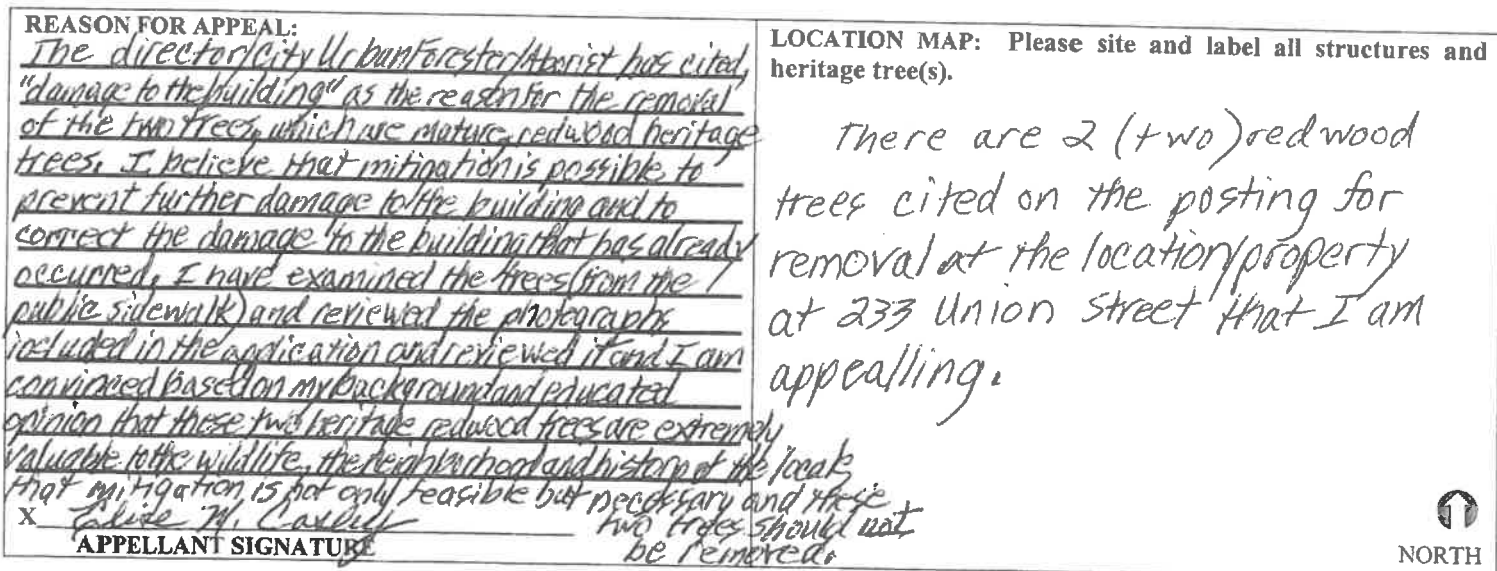 REASON FOR APPEAL:
The director/City Urban Forester/Aborist has cited,
"damage to the building" as the reason for the removal
of the two trees, which are mature, redwood heritage
trees. I believe that mitigation is possible to
prevent further damage to the building and to
correct the damage to the building that has already
occurred. I have examined the trees (from the
public sidewalk) and reviewed the photographs
included in the application and reviewed it and I am
convinced based on my background and educated
opinion that these two heritage redwood trees are extremely
valuable to the wildlife, the neighborhood and history of the locale,
that mitigation is not only feasible but necessary and these
two trees should not
be removed.
X Elise M.
APPELLANT SIGNATURE
LOCATION MAP: Please site and label all structures and
heritage tree(s).
There are 2 (two) redwood
trees cited on the posting for
removal at the location/property
at 233 Union Street that I am
appealling.
NORTH